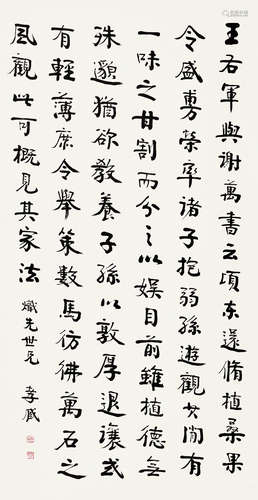 王右軍與謝萬書云頃東還脩植桑果
今盛敷榮率諸子抱弱孫遊觀其間有
一味之甘割而分之以娛目前雖植德無
殊邈猶欲教養子孫以敦厚退讓或
有輕薄庶令舉策數馬彷彿萬石之
風觀此可概見其家法
熾先世兄